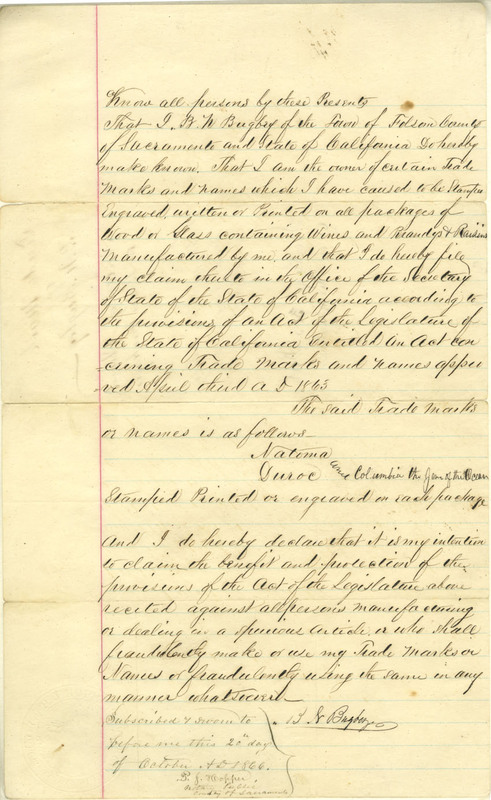 Know all persons by these Presents
That I B. N. Bugbey of the Town of Folsom County
of Sacramento and State of California Do hereby
make known. That I am the owner of certain Trade
Marks and names which I have caused to be Stamped
Engraved, written or Printed on all packages of
Wood or Glass containing Wines and Brandys & Raisins
Manufactured by me, and that I do hereby file
my claim thereto in the Office of the Secretary
of State of the State of California according to
the provisions of an Act of the Legislature of
the State of California Entitled an Act con
cerning Trade Marks and names appro
ved April third A D 1863
The said Trade Marks
or names is as follows
Natoma
Duroc and Columbia the Gem of the Ocean
Stamped Printed or engraved on each package
And I do hereby declare that it is my intention
to claim the benefit and protection of the
provisions of the Act of the Legislature above
recited against all persons manufacturing
or dealing in a spurious Article, or who shall
fraudulently make or use my Trade Marks or
Names or fraudulently using the same in any
manner whatsoever
B N Bugbey
Subscribed & sworn to
before me this 20th day
of October A.D. 1866.
P. J. Hopper,
Notary Public
County of Sacramento